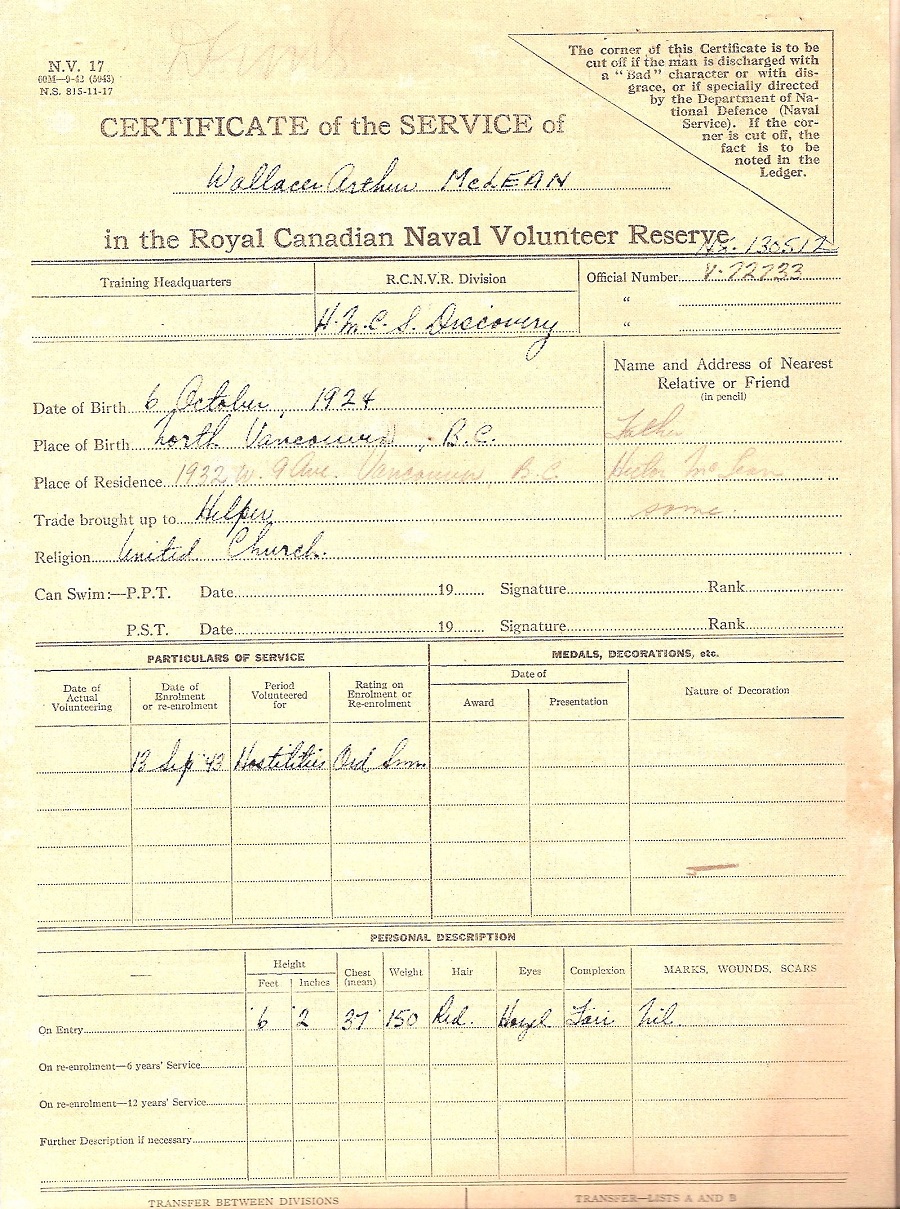 N.V. 17
60M—9-42 (5943)
N.S. 815-11-17
The corner of this Certificate is to be
cut off if the man is discharged with
a "Bad" character or with dis-
grace, or if specially directed
by the Department of Na-
tional Defence (Naval
Service). If the cor-
ner is cut off, the
fact is to be
noted in the
Ledger.
CERTIFICATE of the SERVICE of
Wallace Arthur McLEAN
in the Royal Canadian Naval Volunteer Reserve
130512
Training Headquarters
R.C.N.V.R. Division
Official Number V-72733
"
"
H.M.C.S. Discovery
Name and Address of Nearest
Relative or Friend
(in pencil)
Date of Birth 6 October, 1924
Place of Birth North Vancouver, B.C.
Father
Place of Residence 1932 W. 9 Ave. Vancouver B.C.
Hector McLean
Trade brought up to Helper
same.
Religion United Church.
Can Swim:—P.P.T. Date 19 Signature Rank
P.S.T. Date 19 Signature Rank
PARTICULARS OF SERVICE
MEDALS, DECORATIONS, etc.
Date of
Actual
Volunteering
Date of
Enrolment
or re-enrolment
Period
Volunteered
for
Rating on
Enrolment or
Re-enrolment
Date of
Award
Presentation
Nature of Decoration
13 Sep '43 Hostilities Ord Smn
PERSONAL DESCRIPTION
Height
Feet
Inches
Chest
(mean)
Weight
Hair
Eyes
Complexion
MARKS, WOUNDS, SCARS
On Entry 6 2 37 150 Red. Hazel Fair Nil
On re-enrolment—6 years' Service
On re-enrolment—12 years' Service
Further Description if necessary
TRANSFER BETWEEN DIVISIONS
TRANSFER—LISTS A AND B